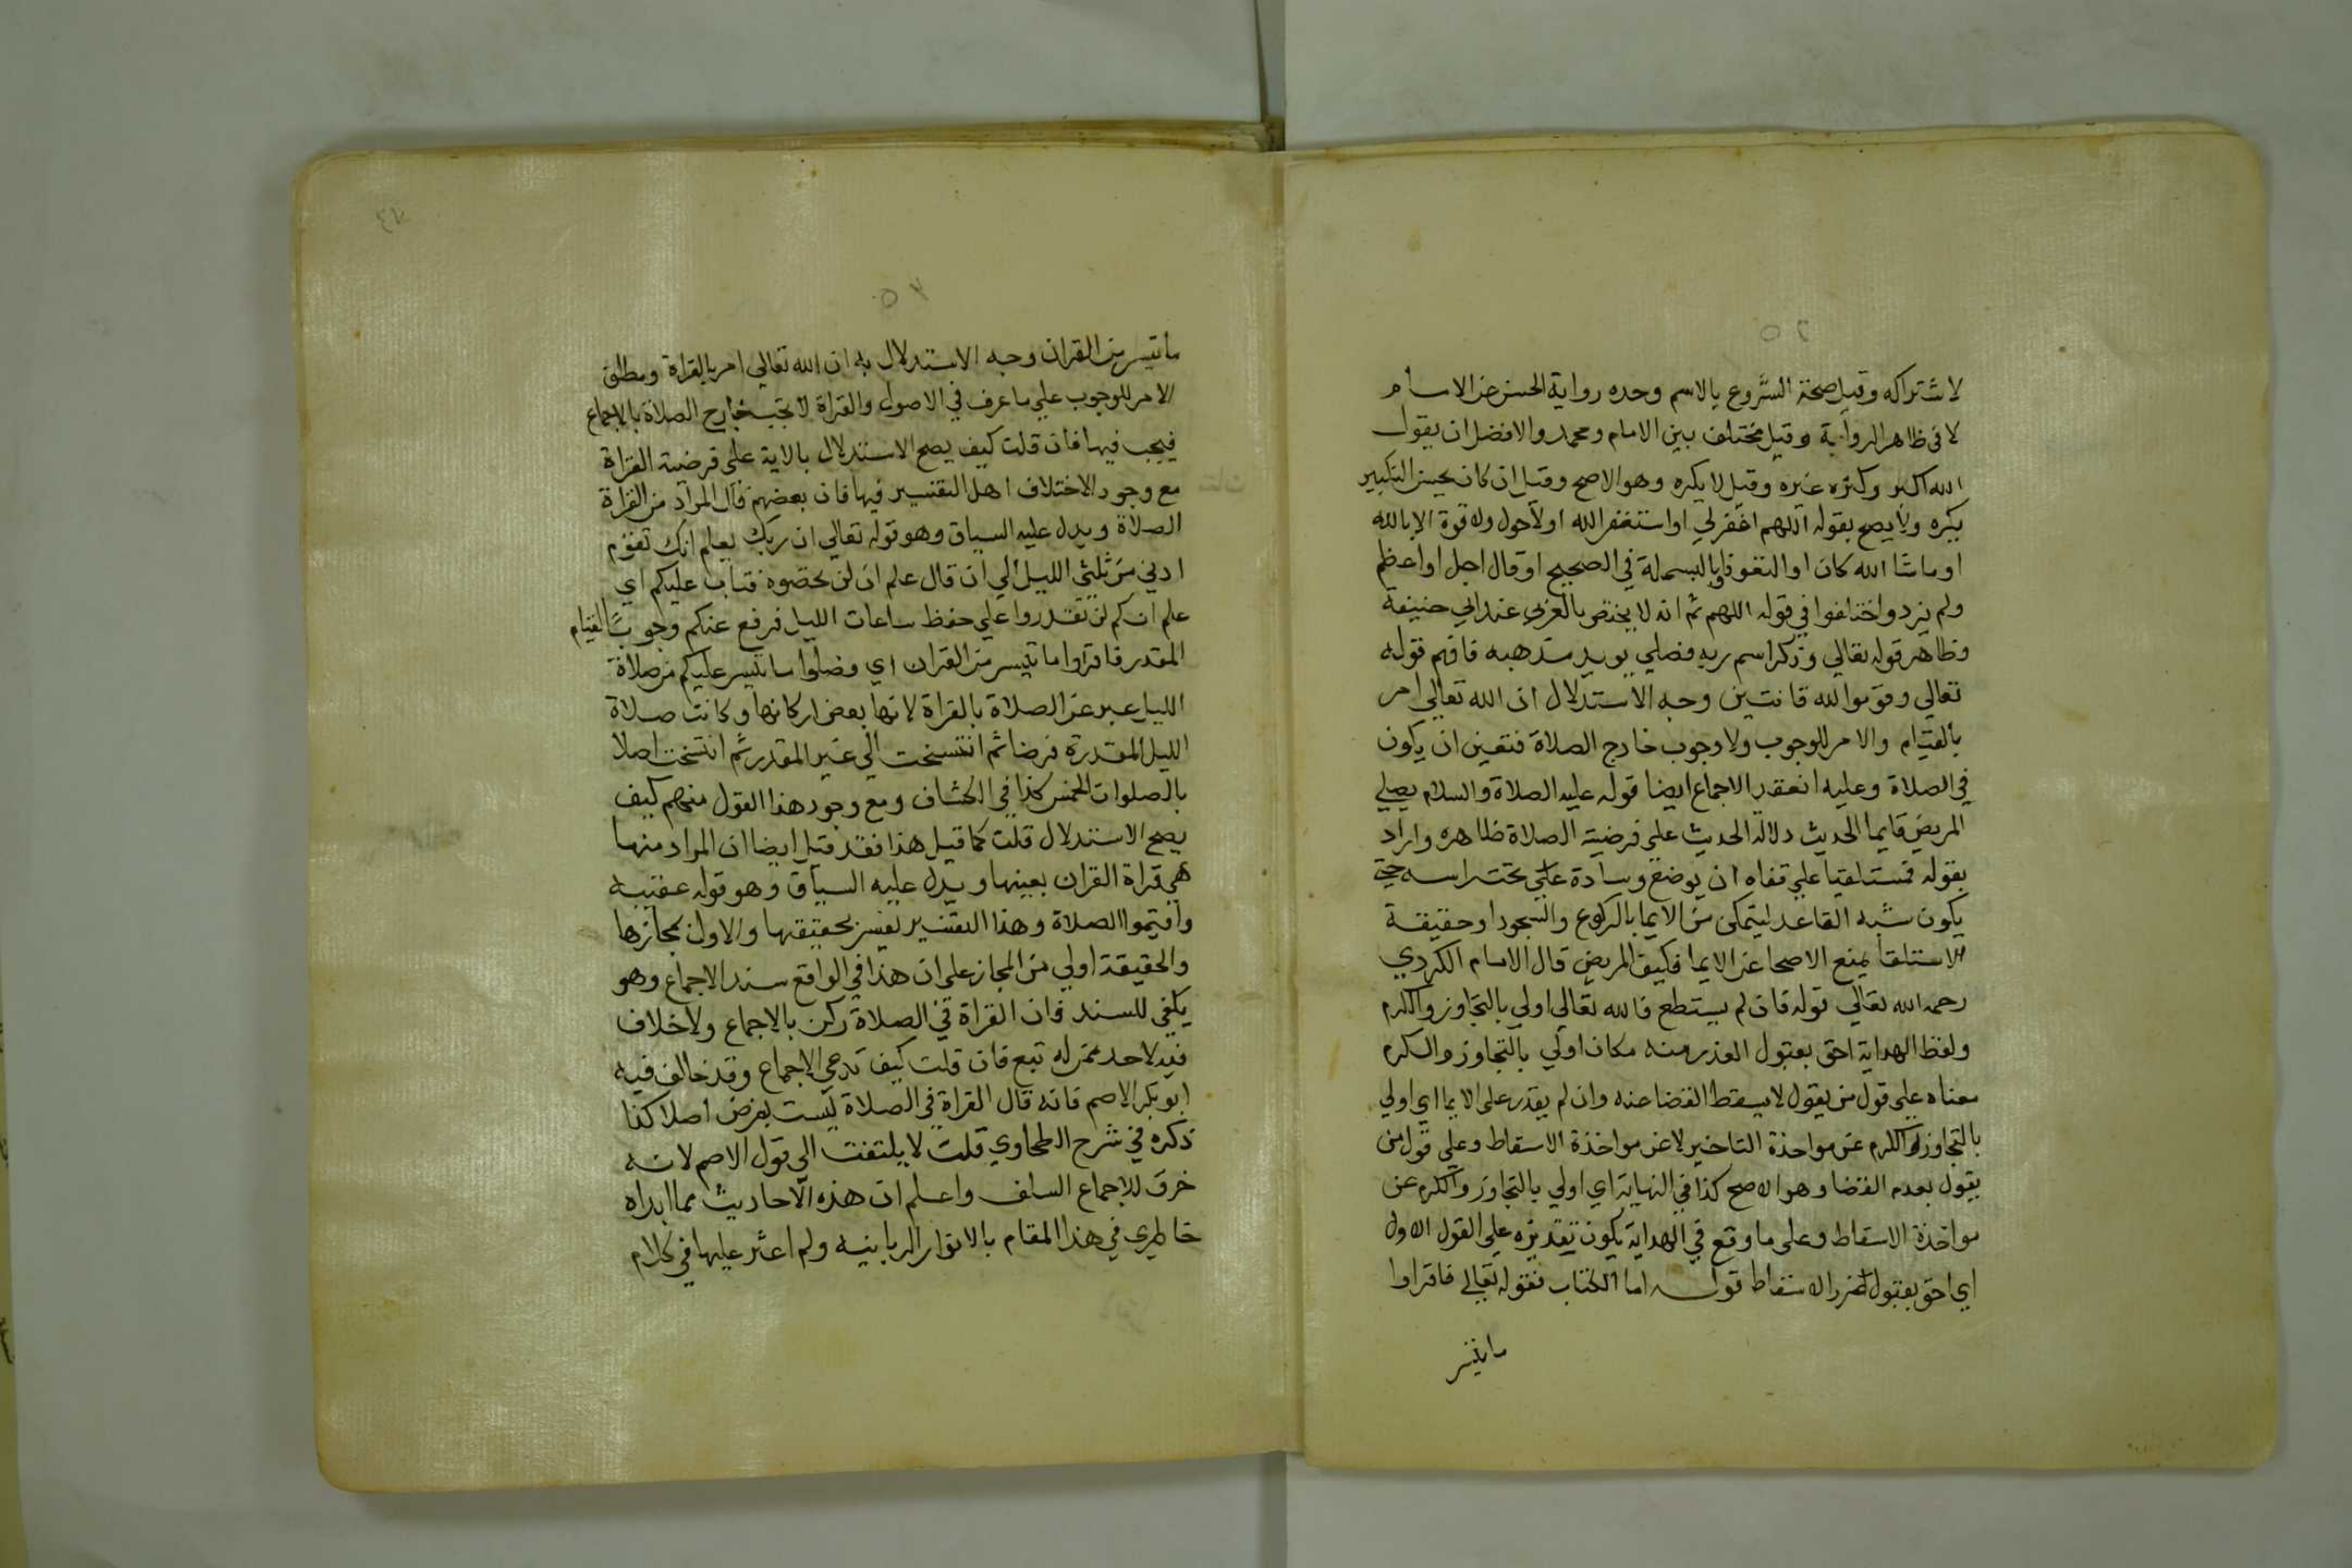 لاشتراكه وقيل صحة الشروع بالاسم وحده رواية الحسن عن الامام
لا في ظاهر الرواية وقيل مختلف بين الامام ومحمد والافضل ان يقول
الله اكبر وكره غيره وقيل لا يكره وهو الاصح وقيل ان كان يحسن التكبير
يكره ولا يصح بقوله اللهم اغفر لي او استغفر الله او لا حول ولا قوة الا بالله
او ما شا الله كان او التعوذ او بالبسملة في الصحيح او قال اجل او اعظم
ولم يزد واختلفوا في قوله اللهم ثم انه لا يختص بالعربي عند ابي حنيفة
وظاهر قوله تعالي وذكر اسم ربه فصلي يويد مذهبه فافهم قوله
تعالي وقوموا لله قانتين وجه الاستدلال ان الله تعالي امر
بالقيام والامر للوجوب ولا وجوب خارج الصلاة فتعين ان يكون
في الصلاة وعليه انعقد الاجماع ايضا قوله عليه الصلاة والسلام يصلي
المريض قايما الحديث دلالة الحديث علي فرضية الصلاة ظاهره واراد
بقوله فمستلقيا علي قفاه ان يوضع وسادة علي تحت راسه حتي
يكون شبه القاعد ليتمكن من الايما بالركوع والسجود او حقيقة
الاستلقا يمنع الاصحا عن الايما فكيف المريض قال الامام الكردي
رحمه الله تعالي قوله فان لم يستطع فالله تعالي اولي بالتجاوز والكرم
ولفظ الهداية احق بقبول العذر منه مكان اولي بالتجاوز والكرم
معناه علي قول من يقول لا يسقط القضا عنه وان لم يقدر علي الايما اي اولي
بالتجاوز والكرم عن مواخذة التاخير لا عن مواخذة الاسقاط وعلي قول من
يقول بعدم القضا وهو الاصح كذا في النهاية اي اولي بالتجاوز والكرم عن
مواخذة الاسقاط وعلي ما وقع في الهداية يكون تقديره علي القول الاول
اي احق بقبول عذر الاسقاط قوله اما الكتاب فقوله تعالي فاقراوا
ما تيسر
ما تيسر من القران وجه الاستدلال به ان الله تعالي امر بالقراة ومطلق
الامر للوجوب علي ما عرف في الاصول والقراة لا تجب خارج الصلاة بالاجماع
فيجب فيها فان قلت كيف يصح الاستدلال بالاية علي فرضية القراة
مع وجود الاختلاف اهل التفسير فيها فان بعضهم قال المراد من القراة
الصلاة ويدل عليه السياق وهو قوله تعالي ان ربك يعلم انك تقوم
ادني من ثلثي الليل الي ان قال علم ان لن تحصوه فتاب عليكم اي
علم ان كم لن تقدروا علي حفظ ساعات الليل فرفع عنكم وجوب القيام
المقدر فاقراوا ما تيسر من القران اي وصلوا ما تيسر عليكم من صلاة
الليل عبر عن الصلاة بالقراة لانها بعض اركانها وكانت صلاة
الليل المقدرة فرضا ثم انتسخت الي غير المقدر ثم انتسخت اصلا
بالصلوات الخمس كذا في الكشاف ومع وجود هذا القول منهم كيف
يصح الاستدلال قلت كما قيل هذا فقد قيل ايضا ان المراد منها
هي قراة القران بعينها ويدل عليه السياق وهو قوله عقيبه
واقيموا الصلاة وهذا التفسير تفسير بحقيقتها والاول بمجازها
والحقيقة اولي من المجاز علي ان هذا في الواقع سند الاجماع وهو
يكفي للسند فان القراة في الصلاة ركن بالاجماع ولا خلاف
فيه لاحد ممن له تبع فان قلت كيف تدعي الاجماع وقد خالف فيه
ابو بكر الاصم فانه قال القراة في الصلاة ليست بفرض اصلا كذا
ذكره في شرح الطحاوي قلت لا يلتفت الي قول الاصم لانه
خرق للاجماع السلف واعلم ان هذه الاحاديث مما ابداه
خاطري في هذا المقام بالانوار الربانيه ولم اعثر عليها في كلام